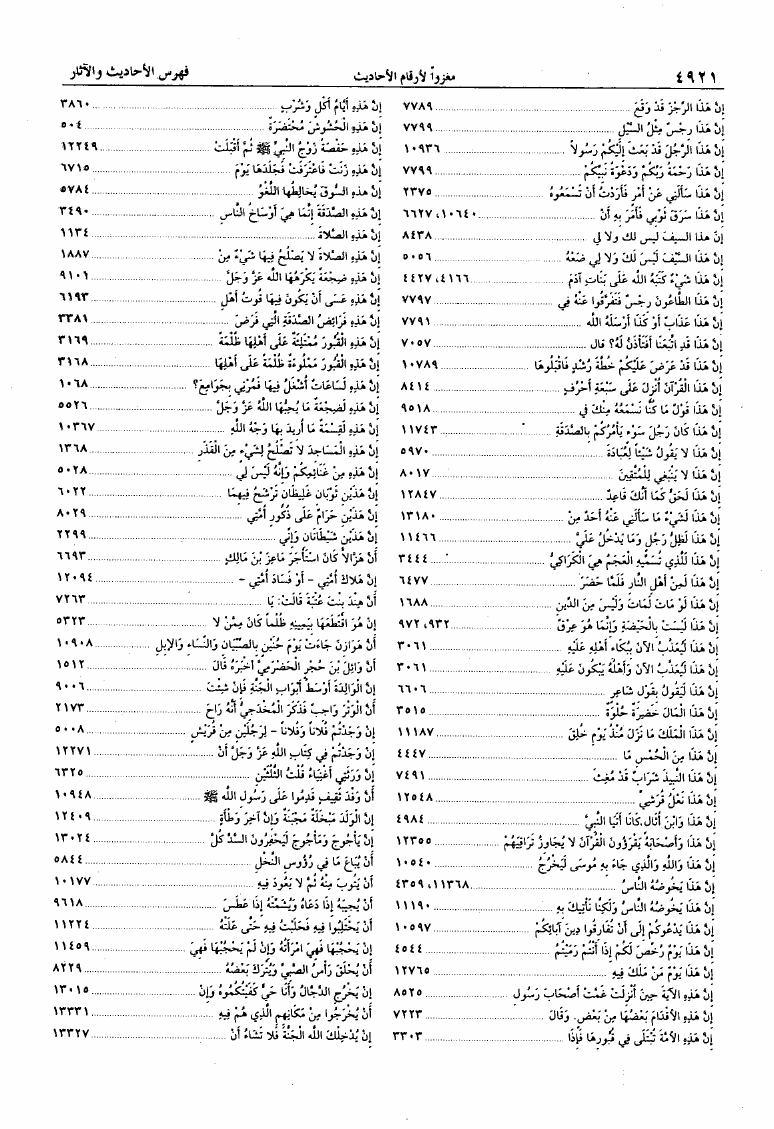 ٤٩٢١
معزواً لأرقام الأحاديث
فهرس الأحاديث والآثار
إِنَّ هَذَا الرِّجْزَ قَدْ وَقَعَ ٧٧٨٩
إِنَّ هَذَا رِجْسٌ مِثْلُ السَّيْلِ ٧٧٩٩
إِنَّ هَذَا الرَّجُلَ قَدْ بَعَثَ إِلَيْكُمْ رَسُولاً ١٠٩٣٦
إِنَّ هَذَا رَحْمَةُ رَبِّكُمْ وَدَعْوَةُ نَبِيِّكُمْ ٧٧٩٩
إِنَّ هَذَا سَأَلَنِي عَنْ أَمْرٍ فَأَرَدْتُ أَنْ تَسْمَعُوهُ ٢٣٧٥
إِنَّ هَذَا سَرَقَ ثَوْبِي فَأْمُرْ بِهِ أَنْ ١٠٦٤٠، ٦٦٢٧
إن هذا السيف ليس لك ولا لي ٨٤٣٨
إِنَّ هَذَا السَّيْفَ لَيْسَ لَكَ وَلَا لِي ضَعْهُ ٥٠٥٦
إِنَّ هَذَا شَيْءٌ كَتَبَهُ اللَّه عَلَى بَنَاتِ آدَمَ ٤١٦٦، ٤٤٢٧
إِنَّ هَذَا الطَّاعُونَ رِجْسٌ فَتَفَرَّقُوا عَنْهُ فِي ٧٧٩٧
إِنَّ هَذَا عَذَابٌ أَوْ كَذَا أَرْسَلَهُ اللَّه ٧٧٩١
إِنَّ هَذَا قَدِ اتَّبَعَنَا أَفَتَأْذَنُ لَهُ؟ قال ٧٠٥٧
إِنَّ هَذَا قَدْ عَرَضَ عَلَيْكُمْ خُطَّةَ رُشْدٍ فَاقْبَلُوهَا ١٠٧٨٩
إِنَّ هَذَا الْقُرْآنَ أُنْزِلَ عَلَى سَبْعَةِ أَحْرُفٍ ٨٤١٤
إِنَّ هَذَا قَوْلٌ مَا كُنَّا نَسْمَعُهُ مِنْكَ فِي ٩٥١٨
إِنَّ هَذَا كَانَ رَجُلَ سَوْءٍ يَأْمُرُكُمْ بِالصَّدَقَةِ ١١٧٤٣
إِنَّ هَذَا لَا يَقُولُ شَيْئاً لِعُبَادَةَ ٥٩٧٠
إِنَّ هَذَا لَا يَنْبَغِي لِلْمُتَّقِينَ ٨٠١٧
إِنَّ هَذَا لَحَقٌّ كَمَا أَنَّكَ قَاعِدٌ ١٢٨٤٧
إِنَّ هَذَا لَشَيْءٌ مَا سَأَلَنِي عَنْهُ أَحَدٌ مِنْ ١٣١٨٠
إِنَّ هَذَا لَظِلُّ رَجُلٍ وَمَا يَدْخُلُ عَلَيَّ ١١٤٦٦
إِنَّ هَذَا لَلَّذِي تُسَمِّيهِ الْعَجَمُ هِيَ الْكَرَاكِيُّ ٣٤٤٤
إِنَّ هَذَا لَمِنْ أَهْلِ النَّارِ فَلَمَّا حَضَرَ ٦٤٧٧
إِنَّ هَذَا لَوْ مَاتَ لَمَاتَ وَلَيْسَ مِنَ الدِّينِ ١٦٨٨
إِنَّ هَذَا لَيْسَتْ بِالْحَيْضَةِ وَإِنَّمَا هُوَ عِرْقٌ ٩٣٢، ٩٧٢
إِنَّ هَذَا لَيُعَذَّبُ الآنَ بِبُكَاءِ أَهْلِهِ عَلَيْهِ ٣٠٦١
إِنَّ هَذَا لَيُعَذَّبُ الآنَ وَأَهْلُهُ يَبْكُونَ عَلَيْهِ ٣٠٦١
إِنَّ هَذَا لَيَقُولُ بِقَوْلِ شَاعِرٍ ٦٦٠٦
إِنَّ هَذَا الْمَالَ خَضِرَةٌ حُلْوَةٌ ٣٥١٥
إِنَّ هَذَا الْمَلَكَ مَا نَزَلَ مُنْذُ يَوْمِ خُلِقَ ١١١٨٧
إِنَّ هَذَا مِنَ الْحُمْسِ مَا ٤٤٤٧
إِنَّ هَذَا النَّبِيذَ شَرَابٌ قَدْ مُغِثَ ٧٤٩١
إِنَّ هَذَا نَعْلُ قُرَشِيٍّ ١٢٥٤٨
إِنَّ هَذَا وَابْنَ أُثَالٍ كَانَا أَتَيَا النَّبِيَّ ٤٩٨٤
إِنَّ هَذَا وَأَصْحَابَهُ يَقْرَؤُونَ الْقُرْآنَ لَا يُجَاوِزُ تَرَاقِيَهُمْ ١٢٣٥٥
إِنَّ هَذَا وَاللَّهِ وَالَّذِي جَاءَ بِهِ مُوسَى لَيَخْرُجُ ١٠٥٤٠
إِنَّ هَذَا يَخُوضُهُ النَّاسُ ١١٣٦٨، ٤٣٥٩
إِنَّ هَذَا يَخُوضُهُ النَّاسُ وَلَكِنَّا نَأْتِيكَ بِهِ ١١١٩٠
إِنَّ هَذَا يَدْعُوكُمْ إِلَى أَنْ تُفَارِقُوا دِينَ آبَائِكُمْ ١٠٥٩٧
إِنَّ هَذَا يَوْمٌ رُخِّصَ لَكُمْ إِذَا أَنْتُمْ رَمَيْتُمُ ٤٥٤٤
إِنَّ هَذَا يَوْمٌ مَنْ مَلَكَ فِيهِ ١٢٧٦٥
إِنَّ هَذِهِ الآيَةَ حِينَ أُنْزِلَتْ غَمَّتْ أَصْحَابَ رَسُولِ ٨٥٢٥
إِنَّ هَذِهِ الأَقْدَامَ بَعْضُهَا مِنْ بَعْضٍ. وَقَالَ ٧٢٢٣
إِنَّ هَذِهِ الأُمَّةَ تُبْتَلَى فِي قُبُورِهَا فَإِذَا ٣٣٠٣
إِنَّ هَذِهِ أَيَّامُ أَكْلٍ وَشُرْبٍ ٣٨٦٠
إِنَّ هَذِهِ الْحُشُوشَ مُحْتَضَرَةٌ ٥٠٤
إِنَّ هَذِهِ حَفْصَةُ زَوْجُ النَّبِيِّ ﷺ ثُمَّ أَقْبَلَتْ ١٢٢٤٩
إِنَّ هَذِهِ زَنَتْ فَاعْتَرَفَتْ فَجَلَدَهَا يَوْمَ ٦٧١٥
إِنَّ هذه السُّوقَ يُخَالِطُهَا اللَّغْوُ ٥٧٨٤
إِنَّ هَذِهِ الصَّدَقَةَ إِنَّمَا هِيَ أَوْسَاخُ النَّاسِ ٣٤٩٠
إِنَّ هَذِهِ الصَّلَاةَ ١١٣٤
إِنَّ هَذِهِ الصَّلَاةَ لَا يَصْلُحُ فِيهَا شَيْءٌ مِنْ ١٨٨٧
إِنَّ هَذِهِ ضِجْعَةٌ يَكْرَهُهَا اللَّه عَزَّ وَجَلَّ ٩١٠١
إِنَّ هَذِهِ عَسَى أَنْ يَكُونَ فِيهَا قُوتُ أَهْلِ ٦١٩٣
إِنَّ هَذِهِ فَرَائِضُ الصَّدَقَةِ الَّتِي فَرَضَ ٣٣٨١
إِنَّ هَذِهِ الْقُبُورَ مُمْتَلِئَةٌ عَلَى أَهْلِهَا ظُلْمَةً ٣١٦٩
إِنَّ هَذِهِ الْقُبُورَ مَمْلُوءَةٌ ظُلْمَةً عَلَى أَهْلِهَا ٣١٦٨
إِنَّ هَذِهِ لَسَاعَاتٌ أُشْغَلُ فِيهَا فَمُرْنِي بِجَوَامِعَ؟ ١٠٦٨
إِنَّ هَذِهِ لَضِجْعَةٌ مَا يُحِبُّهَا اللَّهُ عَزَّ وَجَلَّ ٥٥٢٦
إِنَّ هَذِهِ لَقِسْمَةٌ مَا أُرِيدَ بِهَا وَجْهُ اللَّهِ ١٠٣٦٧
إِنَّ هَذِهِ الْمَسَاجِدَ لَا تَصْلُحُ لِشَيْءٍ مِنَ الْقَذَرِ ١٣٦٨
إِنَّ هَذِهِ مِنْ غَنَائِمِكُمْ وَإِنَّهُ لَيْسَ لِي ٥٠٢٨
إِنَّ هَذَيْنِ ثَوْبَانِ غَلِيظَانِ تَرْشَحُ فِيهِمَا ٦٠٢٢
إِنَّ هَذَيْنِ حَرَامٌ عَلَى ذُكُورِ أُمَّتِي ٨٠٢٩
إِنَّ هَذَيْنِ شَيْطَانَانِ وَإِنِّي ٢٢٩٩
أَنَّ هَزَّالاً كَانَ اسْتَأْجَرَ مَاعِزَ بْنَ مَالِكٍ ٦٦٩٣
إِنَّ هَلَاكَ أُمَّتِي - أَوْ فَسَادَ أُمَّتِي - ١٢٠٩٤
أَنَّ هِنْدَ بِنْتَ عُتْبَةَ قَالَتْ: يَا ٧٢٦٣
إِنْ هُوَ اقْتَطَعَهَا بِيَمِينِهِ ظُلْماً كَانَ مِمَّنْ لَا ٥٣٢٣
أَنَّ هَوَازِنَ جَاءَتْ يَوْمَ حُنَيْنٍ بِالصِّبْيَانِ وَالنِّسَاءِ وَالإِبِلِ ١٠٩٠٨
أَنَّ وَائِلَ بْنَ حُجْرٍ الْحَضْرَمِيَّ أَخْبَرَهُ قَالَ ١٥١٢
إِنَّ الْوَالِدَةَ أَوْسَطُ أَبْوَابِ الْجَنَّةِ فَإِنْ شِئْتَ ٩٠٠٦
أَنَّ الْوَتْرَ وَاجِبٌ فَذَكَرَ الْمُخْدَجِيُّ أَنَّهُ رَاحَ ٢١٧٣
إِنْ وَجَدْتُمْ فُلَاناً وَفُلَاناً - لِرَجُلَيْنِ مِنْ قُرَيْشٍ ٥٠٠٨
إِنْ وَجَدْتُمْ فِي كِتَابِ اللَّهِ عَزَّ وَجَلَّ أَنْ ١٢٢٧١
إِنَّ وَرَثَتِي أَغْنِيَاءُ قُلْتُ الثُّلُثَيْنِ ٦٣٢٥
أَنَّ وَفْدَ ثَقِيفٍ قَدِمُوا عَلَى رَسُولِ اللَّه ﷺ ١٠٩٤٨
إِنَّ الْوَلَدَ مَبْخَلَةٌ مَجْبَنَةٌ وَإِنَّ آخِرَ وَطْأَةٍ ١٢٤٠٩
إِنَّ يَأْجُوجَ وَمَأْجُوجَ لَيَحْفِرُونَ السَّدَّ كُلَّ ١٣٠٢٤
أَنْ يُبَاعَ مَا فِي رُؤُوسِ النَّخْلِ ٥٨٤٤
أَنْ يَتُوبَ مِنْهُ ثُمَّ لَا يَعُودَ فِيهِ ١٠١٧٧
أَنْ يُجِيبَهُ إِذَا دَعَاهُ وَيُشَمِّتَهُ إِذَا عَطَسَ ٩٦١٨
أَنْ يَحْتَلِبُوا فِيهِ فَحَلَبَتْ فِيهِ حَتَّى عَلَتْهُ ١١٢٢٤
إِنْ يَحْجُبْهَا فَهِيَ امْرَأَتُهُ وَإِنْ لَمْ يَحْجُبْهَا فَهِيَ ١١٤٥٩
أَنْ يُحْلَقَ رَأْسُ الصَّبِيِّ وَيُتْرَكَ بَعْضُهُ ٨٢٢٩
إِنْ يَخْرُجِ الدَّجَّالُ وَأَنَا حَيٌّ كَفَيْتُكُمُوهُ وَإِنْ ١٣٠١٥
أَنْ يُخْرَجُوا مِنْ مَكَانِهِمِ الَّذِي هُمْ فِيهِ ١٣٣٣١
إِنْ يُدْخِلْكَ اللَّه الْجَنَّةَ فَلَا تَشَاءُ أَنْ ١٣٣٢٧